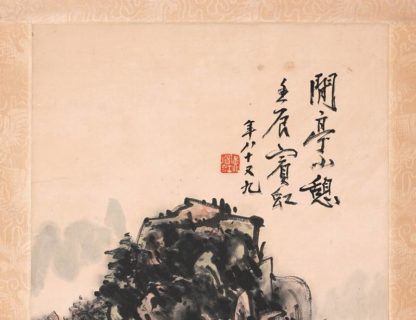 閒亭小憩
壬辰賓虹
年八十又九